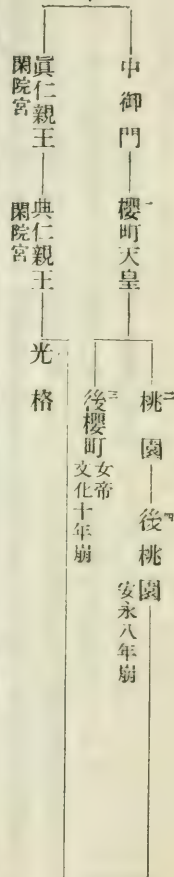 中御門
櫻町天皇
一
桃園
二
後桃園
四
安永八年崩
後櫻町
三
女帝
文化十年崩
眞仁親王
閑院宮
典仁親王
閑院宮
光格